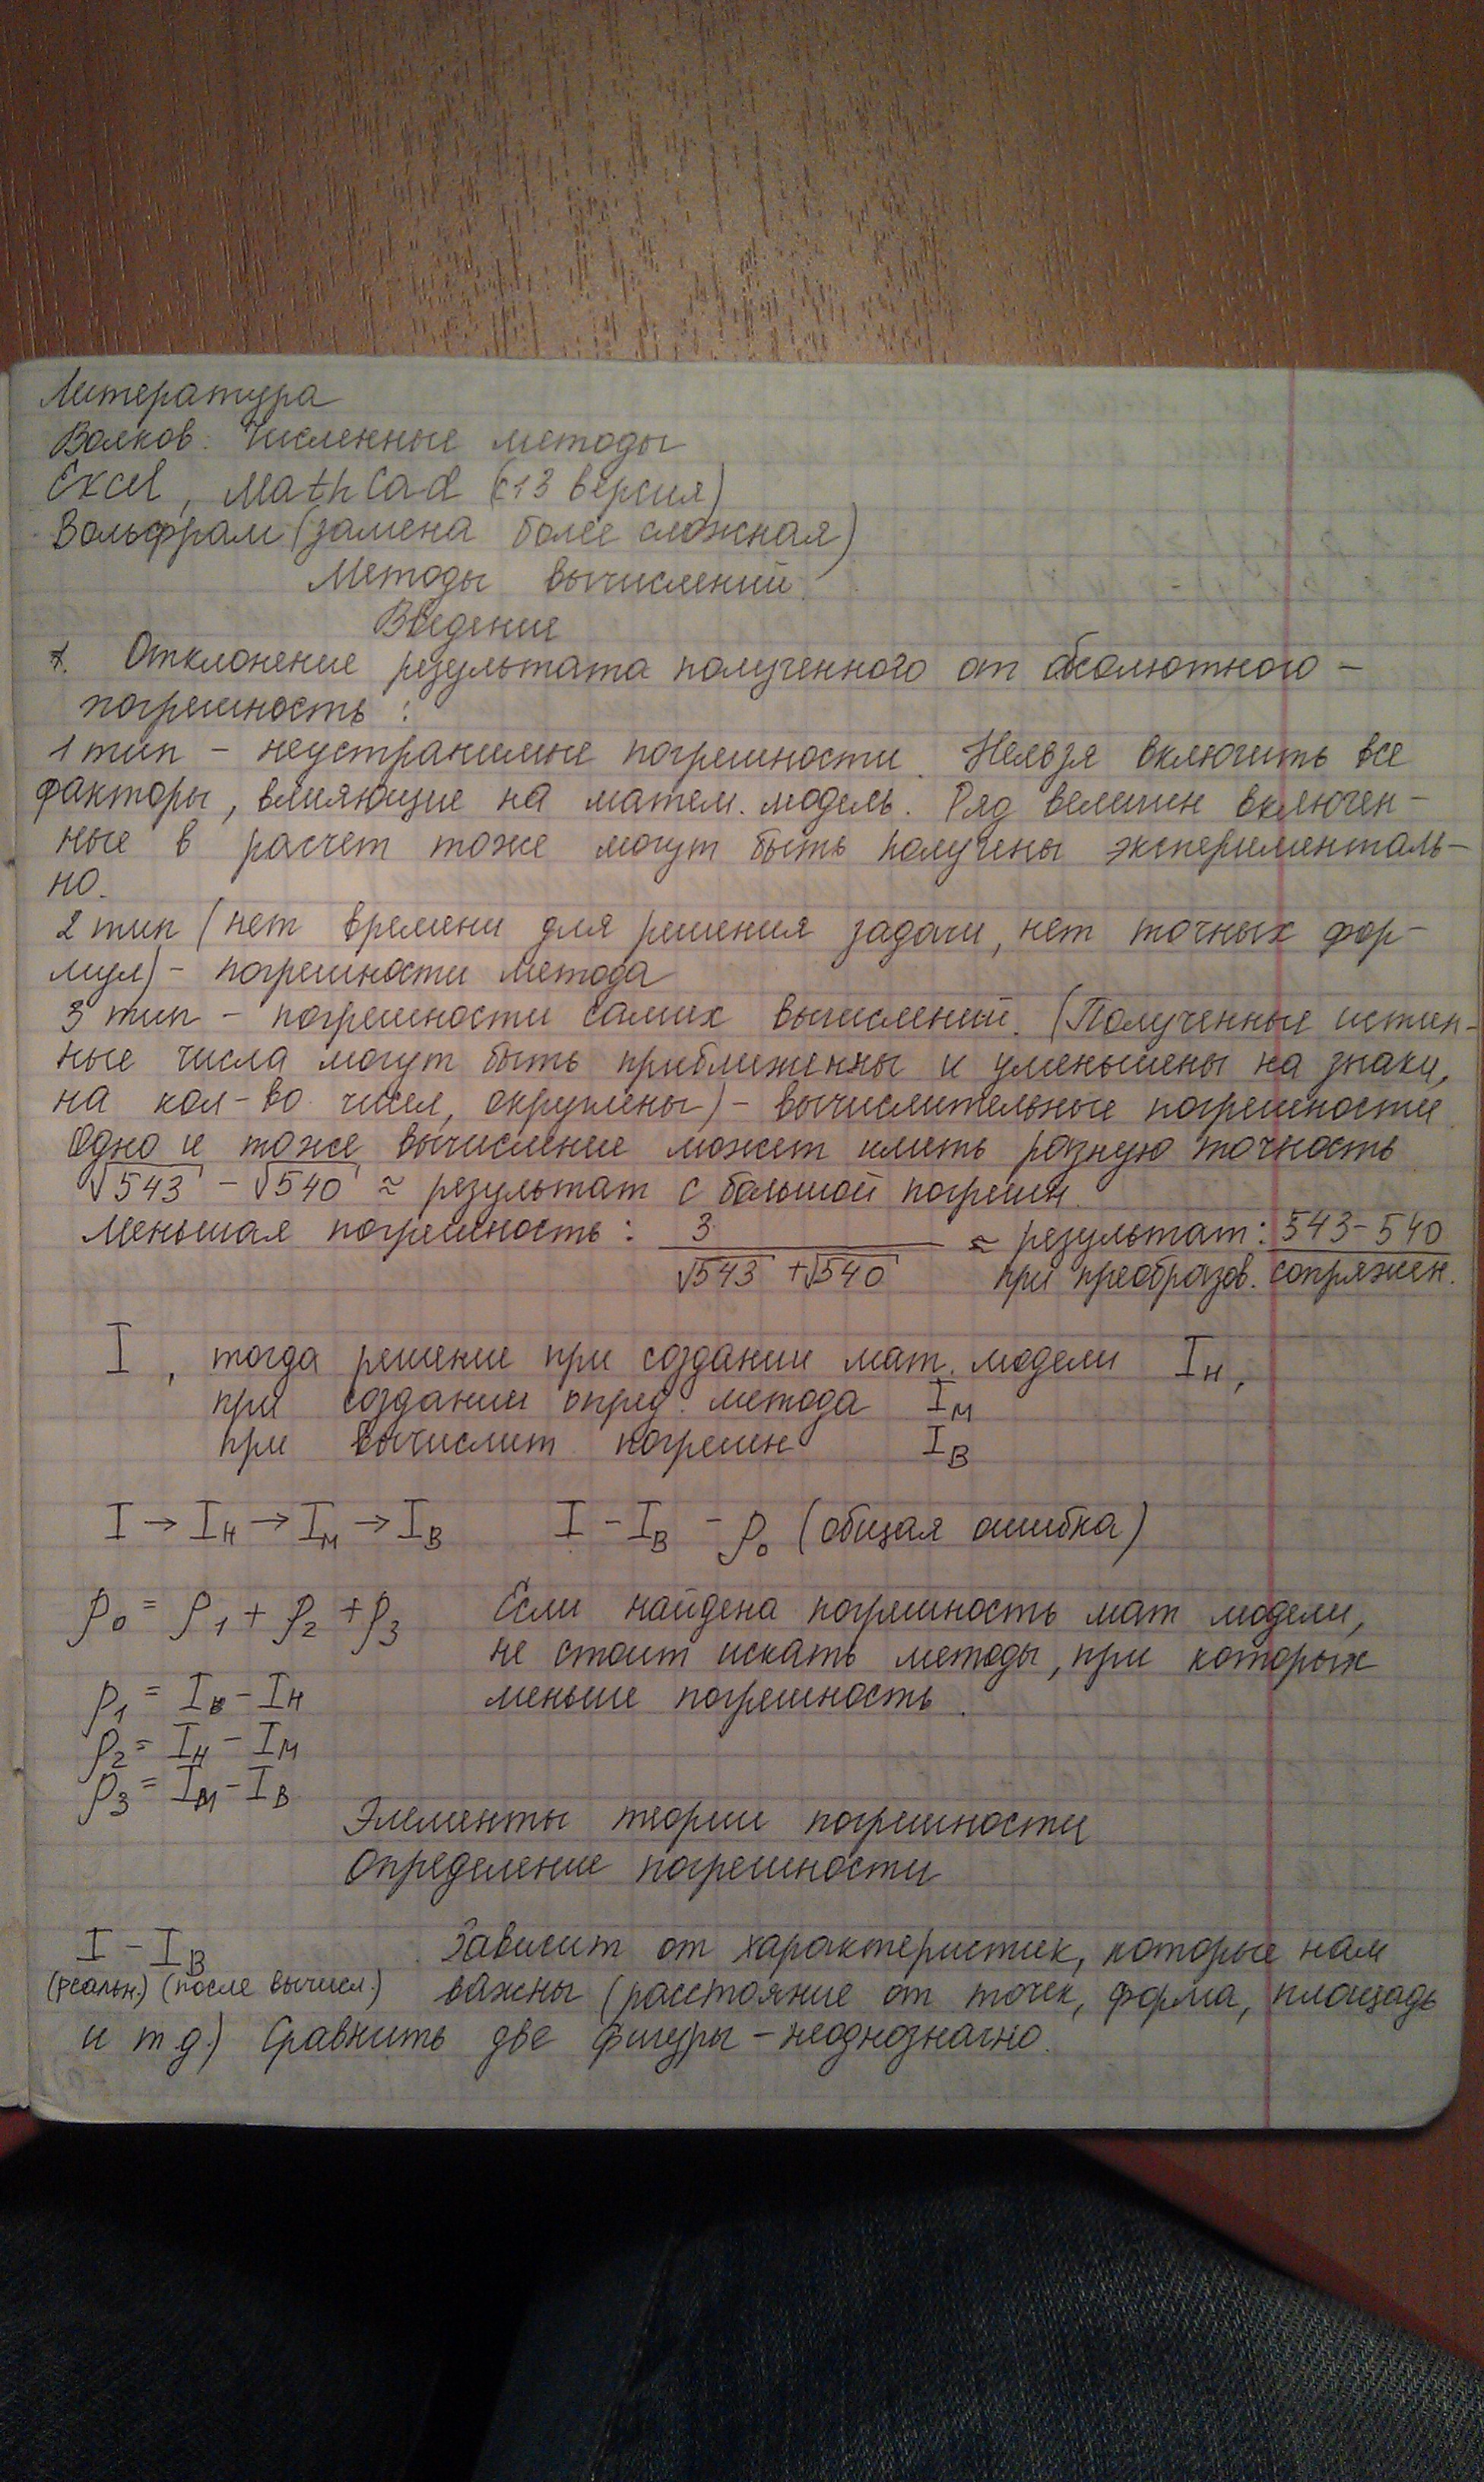 Литература
Волков: Численные методы
Excel, MathCad (<13 версия)
Вольфрам (замена более сложная)
Методы вычислений
Введение
1. Отклонение результата полученного от абсолютного –
погрешность:
1 тип – неустранимые погрешности. Нельзя включить все
факторы, влияющие на матем. модель. Ряд величин включен-
ные в расчет тоже могут быть получены эксперименталь-
но.
2 тип (нет времени для решения задачи, нет точных фор-
мул) – погрешности метода
3 тип – погрешности самих вычислений. (Полученные истин-
ные числа могут быть приближенны и уменьшены на знаки,
на кол-во чисел, округлены) – вычислительные погрешности
Одно и тоже вычисление может иметь разную точность
√543 – √540 ≈ результат с большой погрешн.
Меньшая погрешность: 3 / (√543 + √540) ≈ результат: 543 – 540
при преобразов. сопряжен.
I, тогда решение при создании мат. модели Iн,
при создании опред. метода Iм
при вычислит. погрешн Iв
I → Iн → Iм → Iв I – Iв – ρ₀ (общая ошибка)
ρ₀ = ρ₁ + ρ₂ + ρ₃ Если найдена погрешность мат модели,
не стоит искать методы, при которых
меньше погрешность.
ρ₁ = Iв – Iн
ρ₂ = Iн – Iм
ρ₃ = Iм – Iв
Элементы теории погрешности
Определение погрешности
I – Iв Зависит от характеристик, которые нам
(реальн.) (после вычисл.) важны (расстояние от точек, форма, площадь
и т д.) Сравнить две фигуры – неоднозначно.